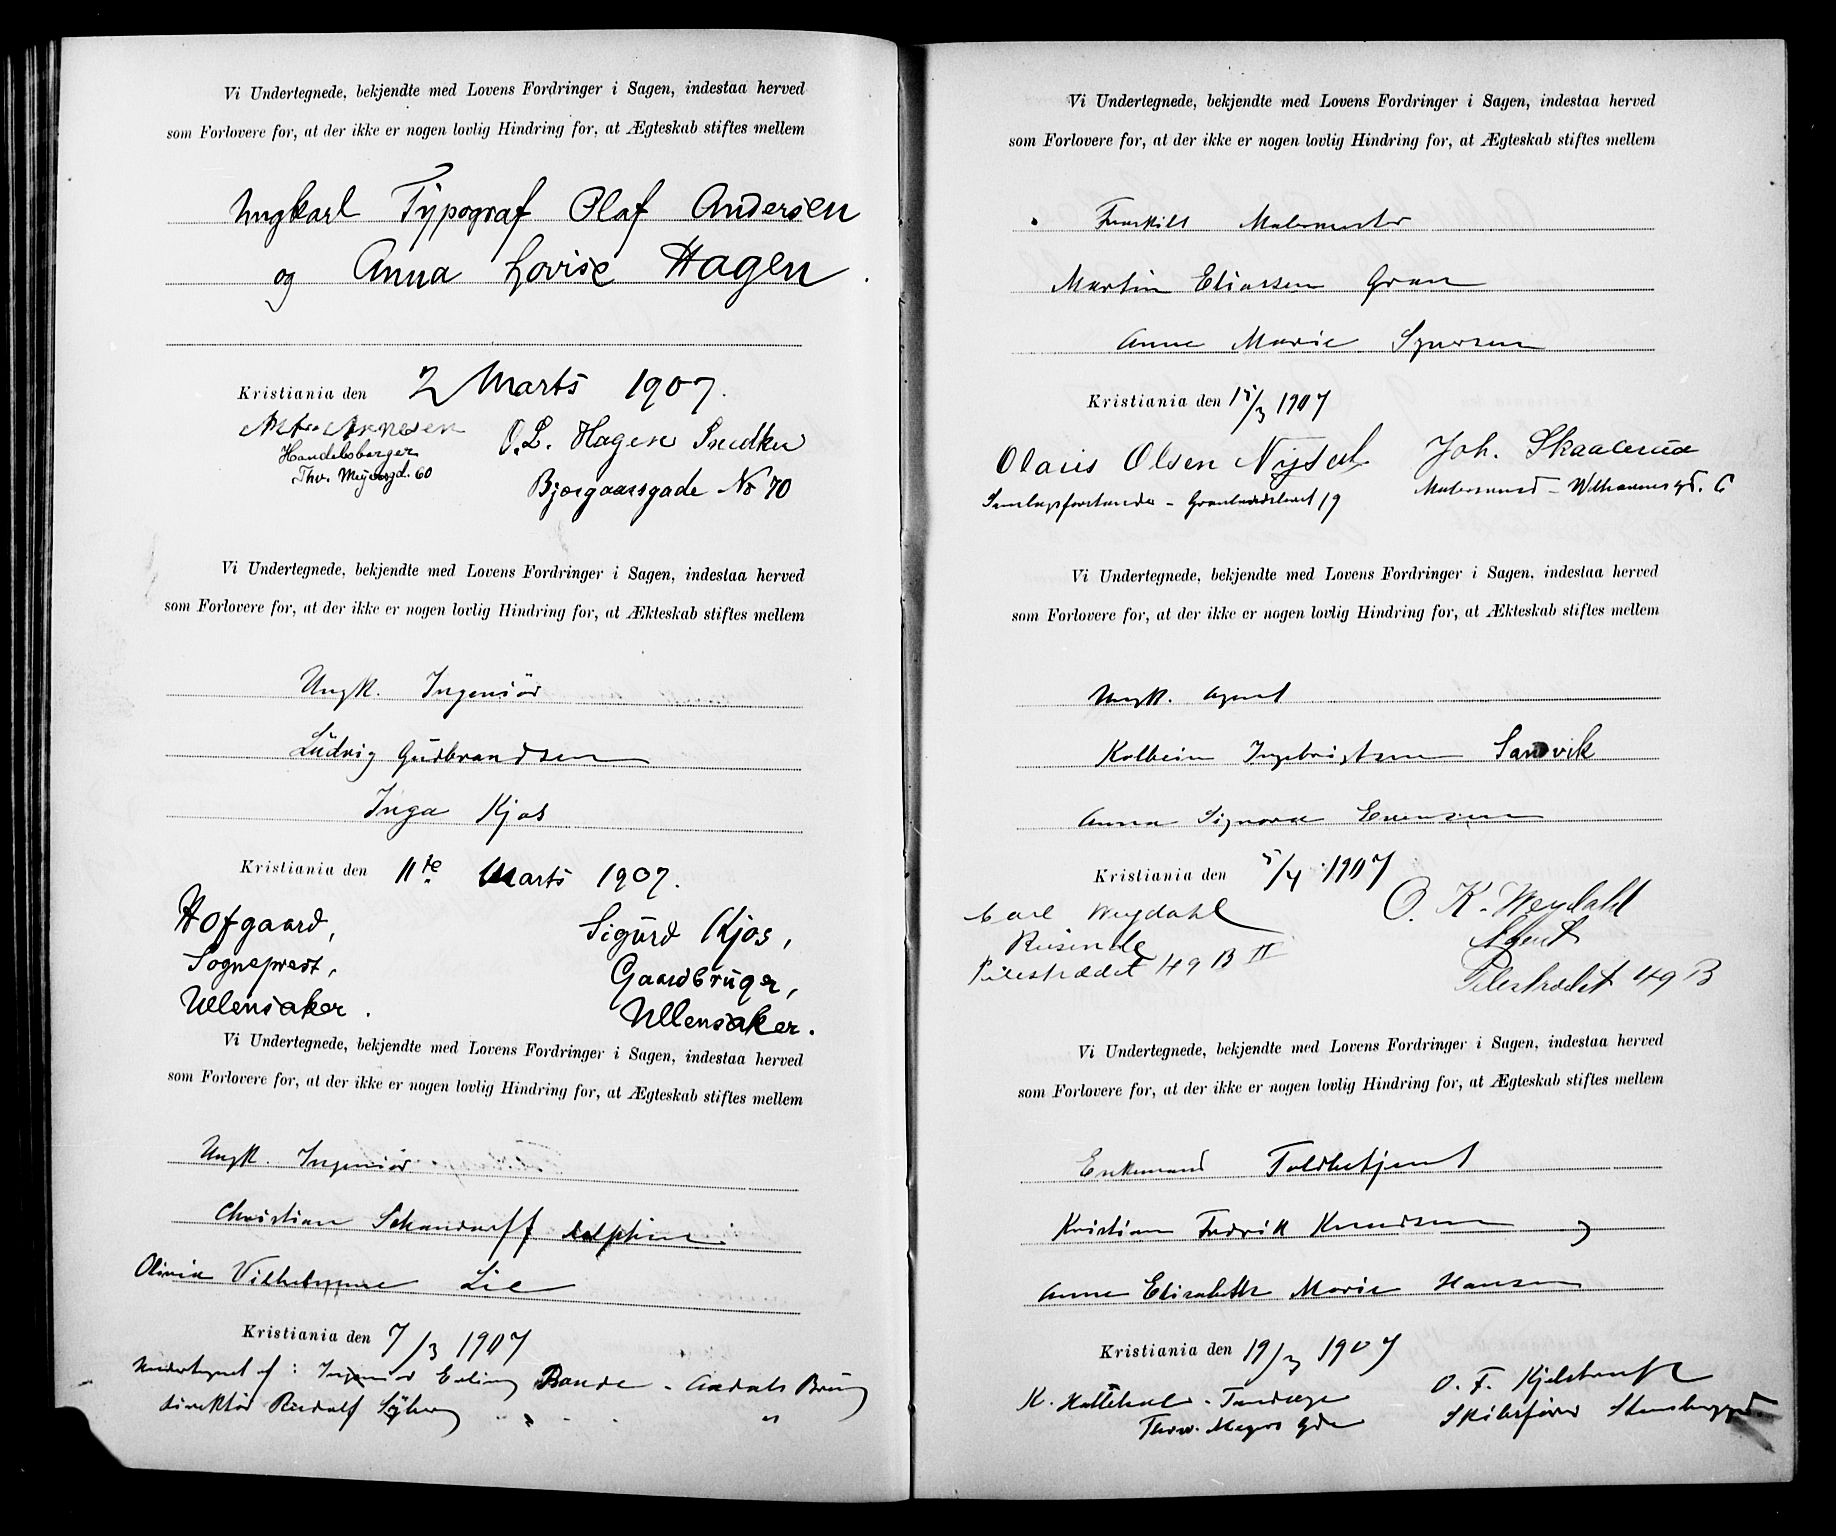 Vi Undertegnede, bekjendte med Lovens Fordringer i Sagen, indestaa herved
som Forlovere for, at der ikke er nogen lovlig Hindring for, at Ægteskab stiftes mellem
Ungkarl Typograf Olaf Andersen
og Anna Lovise Hagen.
Kristiania den 2 Marts 1907.
Handelsborger
Thv. Meyersgd. 60
O. L. Hagen Snedker
Bjergaarsgade No 70
Vi Undertegnede, bekjendte med Lovens Fordringer i Sagen, indestaa herved
som Forlovere for, at der ikke er nogen lovlig Hindring for, at Ækteskab stiftes mellem
Ungk. Ingeniör
Ludvig Gudbrandsen
Inga Kjos
Kristiania den 11te Marts 1907.
Hofgaard,
Sogneprest,
Ullensaker.
Sigurd Kjos,
Gaardbruger,
Ullensaker.
Vi Undertegnede, bekjendte med Lovens Fordringer i Sagen, indestaa herved
som Forlovere for, at der ikke er nogen lovlig Hindring for, at Ægteskab stiftes mellem
Ungk. Ingeniör
Christian Schandorff Delphin
Olivia Vilhelmine Lie
Kristiania den 7/3 1907
Undertegnet af: Ingeniör Erling - Aadals Brug
direktör Rudolf " "
Vi Undertegnede, bekjendte med Lovens Fordringer i Sagen, indestaa herved
som Forlovere for, at der ikke er nogen lovlig Hindring for, at Ægteskab stiftes mellem
Fraskilt Malermester
Martin Eliassen Gran
Anne Marie Syversen
Kristiania den 15/3 1907
Olaus Olsen
Samlagsforstander - 19
Joh. Skaalerud
Malersvend - gd. 6
Vi Undertegnede, bekjendte med Lovens Fordringer i Sagen, indestaa herved
som Forlovere for, at der ikke er nogen lovlig Hindring for, at Ækteskab stiftes mellem
Ungk. Agent
Kolbein Ingebrigtsen Sandvik
Anna Signora Evensen
Kristiania den 5/4 1907
Carl Weydahl
Reisende
Pilestrædet 49 B II
O. K. Weydahl
Agent
Pilestrædet 49 B
Vi Undertegnede, bekjendte med Lovens Fordringer i Sagen, indestaa herved
som Forlovere for, at der ikke er nogen lovlig Hindring for, at Ægteskab stiftes mellem
Enkemand Toldbetjent
Kristian Fredrik Knudsen og
Anne Elisabeth Marie Hansen
Kristiania den 19/3 1907
K. - Tandlæge
Thorv. Meyers Gde
O. F. Kjelstrup
Skibsfører Stensberggd.